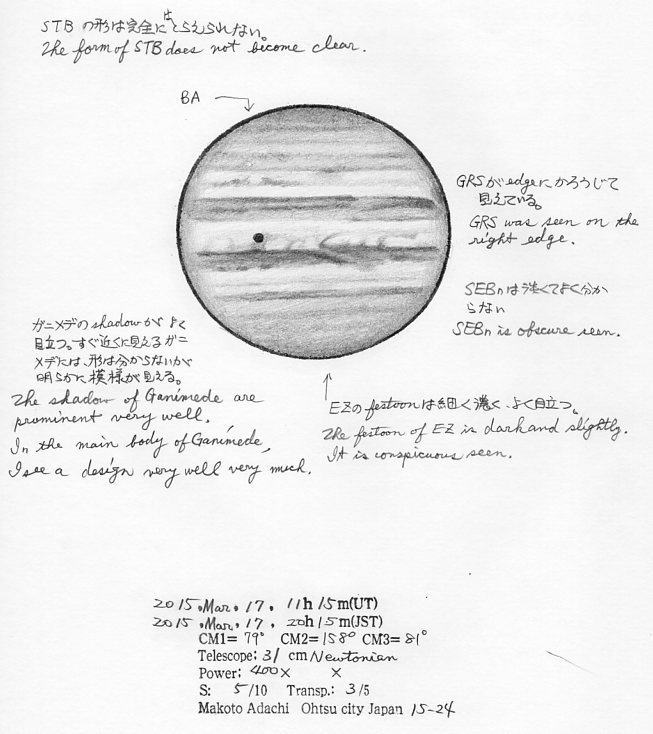 STBの形は完全にはとらえられない。
The form of STB does not become clear.
BA
GRSがedgeにかろうじて
見えている。
GRS was seen on the
right edge.
SEBnは淡くてよく分か
らない
SEBn is obscure seen.
ガニメデのshadowがよく
目立つ。すぐ近くに見えるガニ
メデには、形は分からないが
明らかに模様が見える。
The shadow of Ganimede are
prominent very well.
In the main body of Ganimede,
I see a design very well very much.
EZのfestoonは細く濃く、よく目立つ。
The festoon of EZ is dark and slightly.
It is conspicuous seen.
2015.Mar.17. 11h 15m(UT)
2015.Mar.17. 20h 15m(JST)
CM1= 79° CM2= 158° CM3= 81°
Telescope: 31 cm Newtonian
Power: 400× ×
S: 5/10 Transp.: 3/5
Makoto Adachi Ohtsu city Japan 15-24